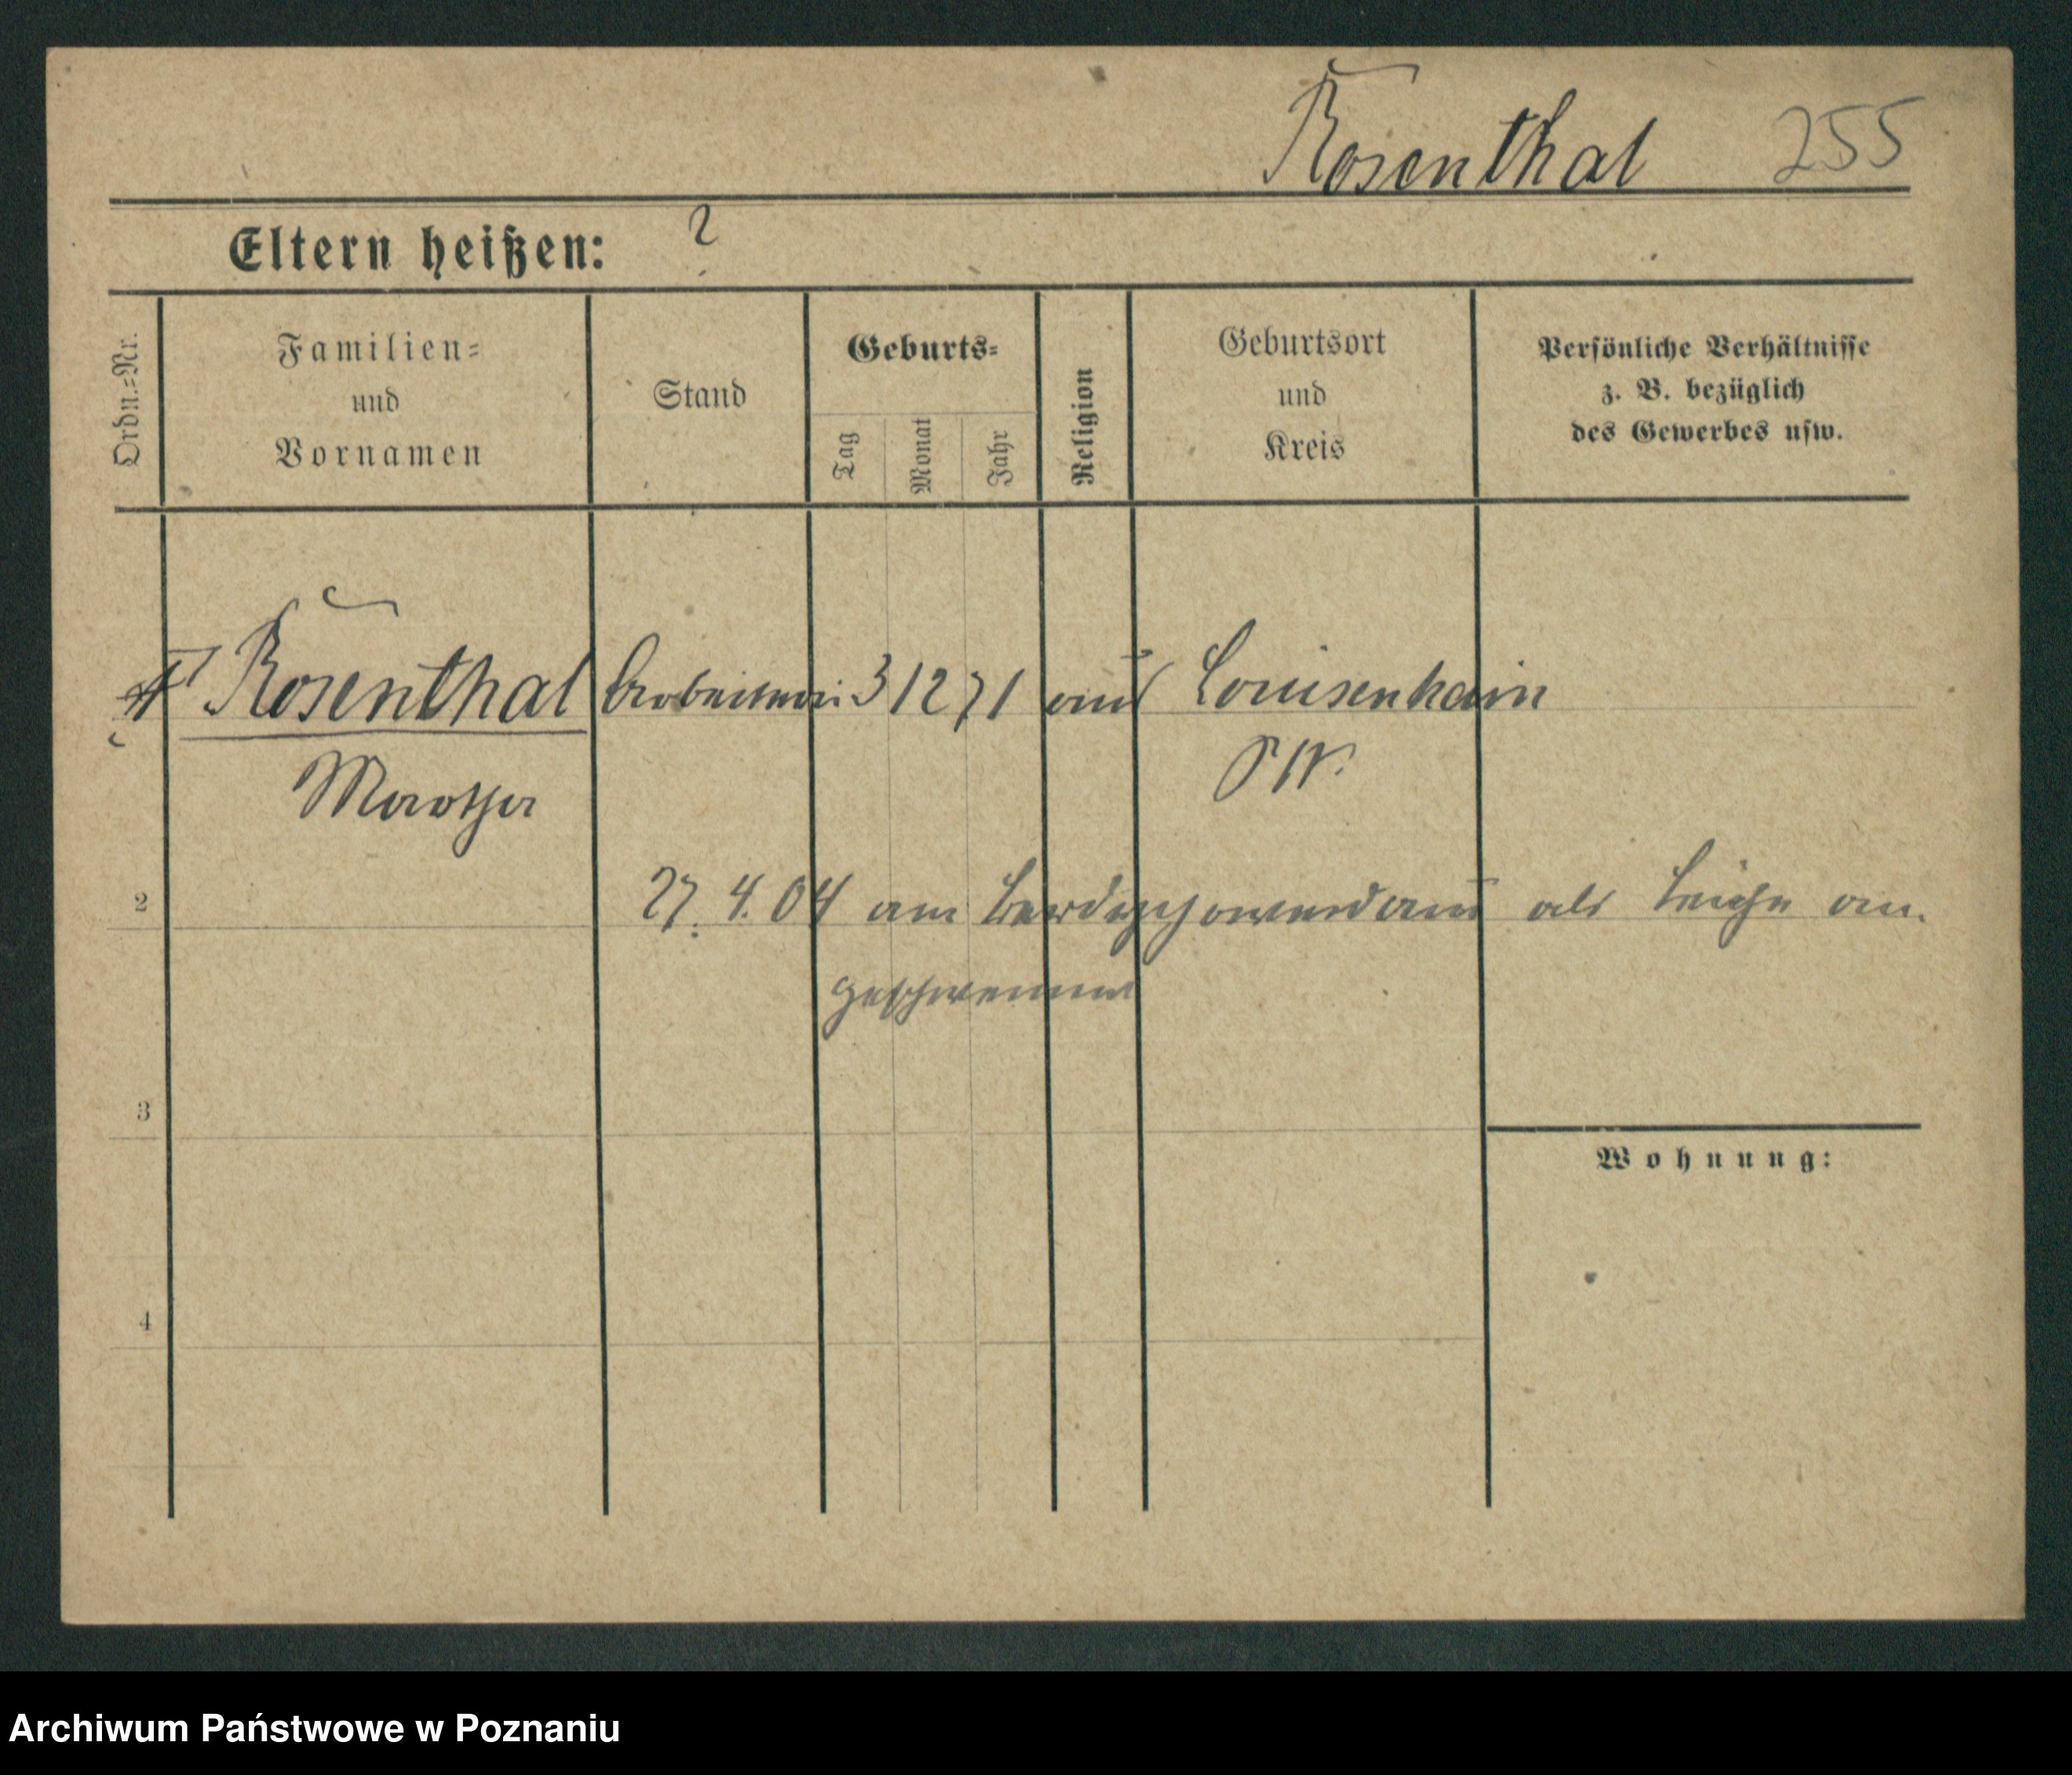 Rosenthal 255
Eltern heißen: ?
Ordn.=Nr.
Familien=
und
Vornamen
Stand
Geburts=
Tag
Monat
Jahr
Religion
Geburtsort
und
Kreis
Persönliche Verhältnisse
z. B. bezüglich
des Gewerbes usw.
Rosenthal 3 12 71 Louisenhain
Martha
2
27. 4. 04 am als Leiche an
geschwemmt
3
Wohnung:
4
Archiwum Państwowe w Poznaniu